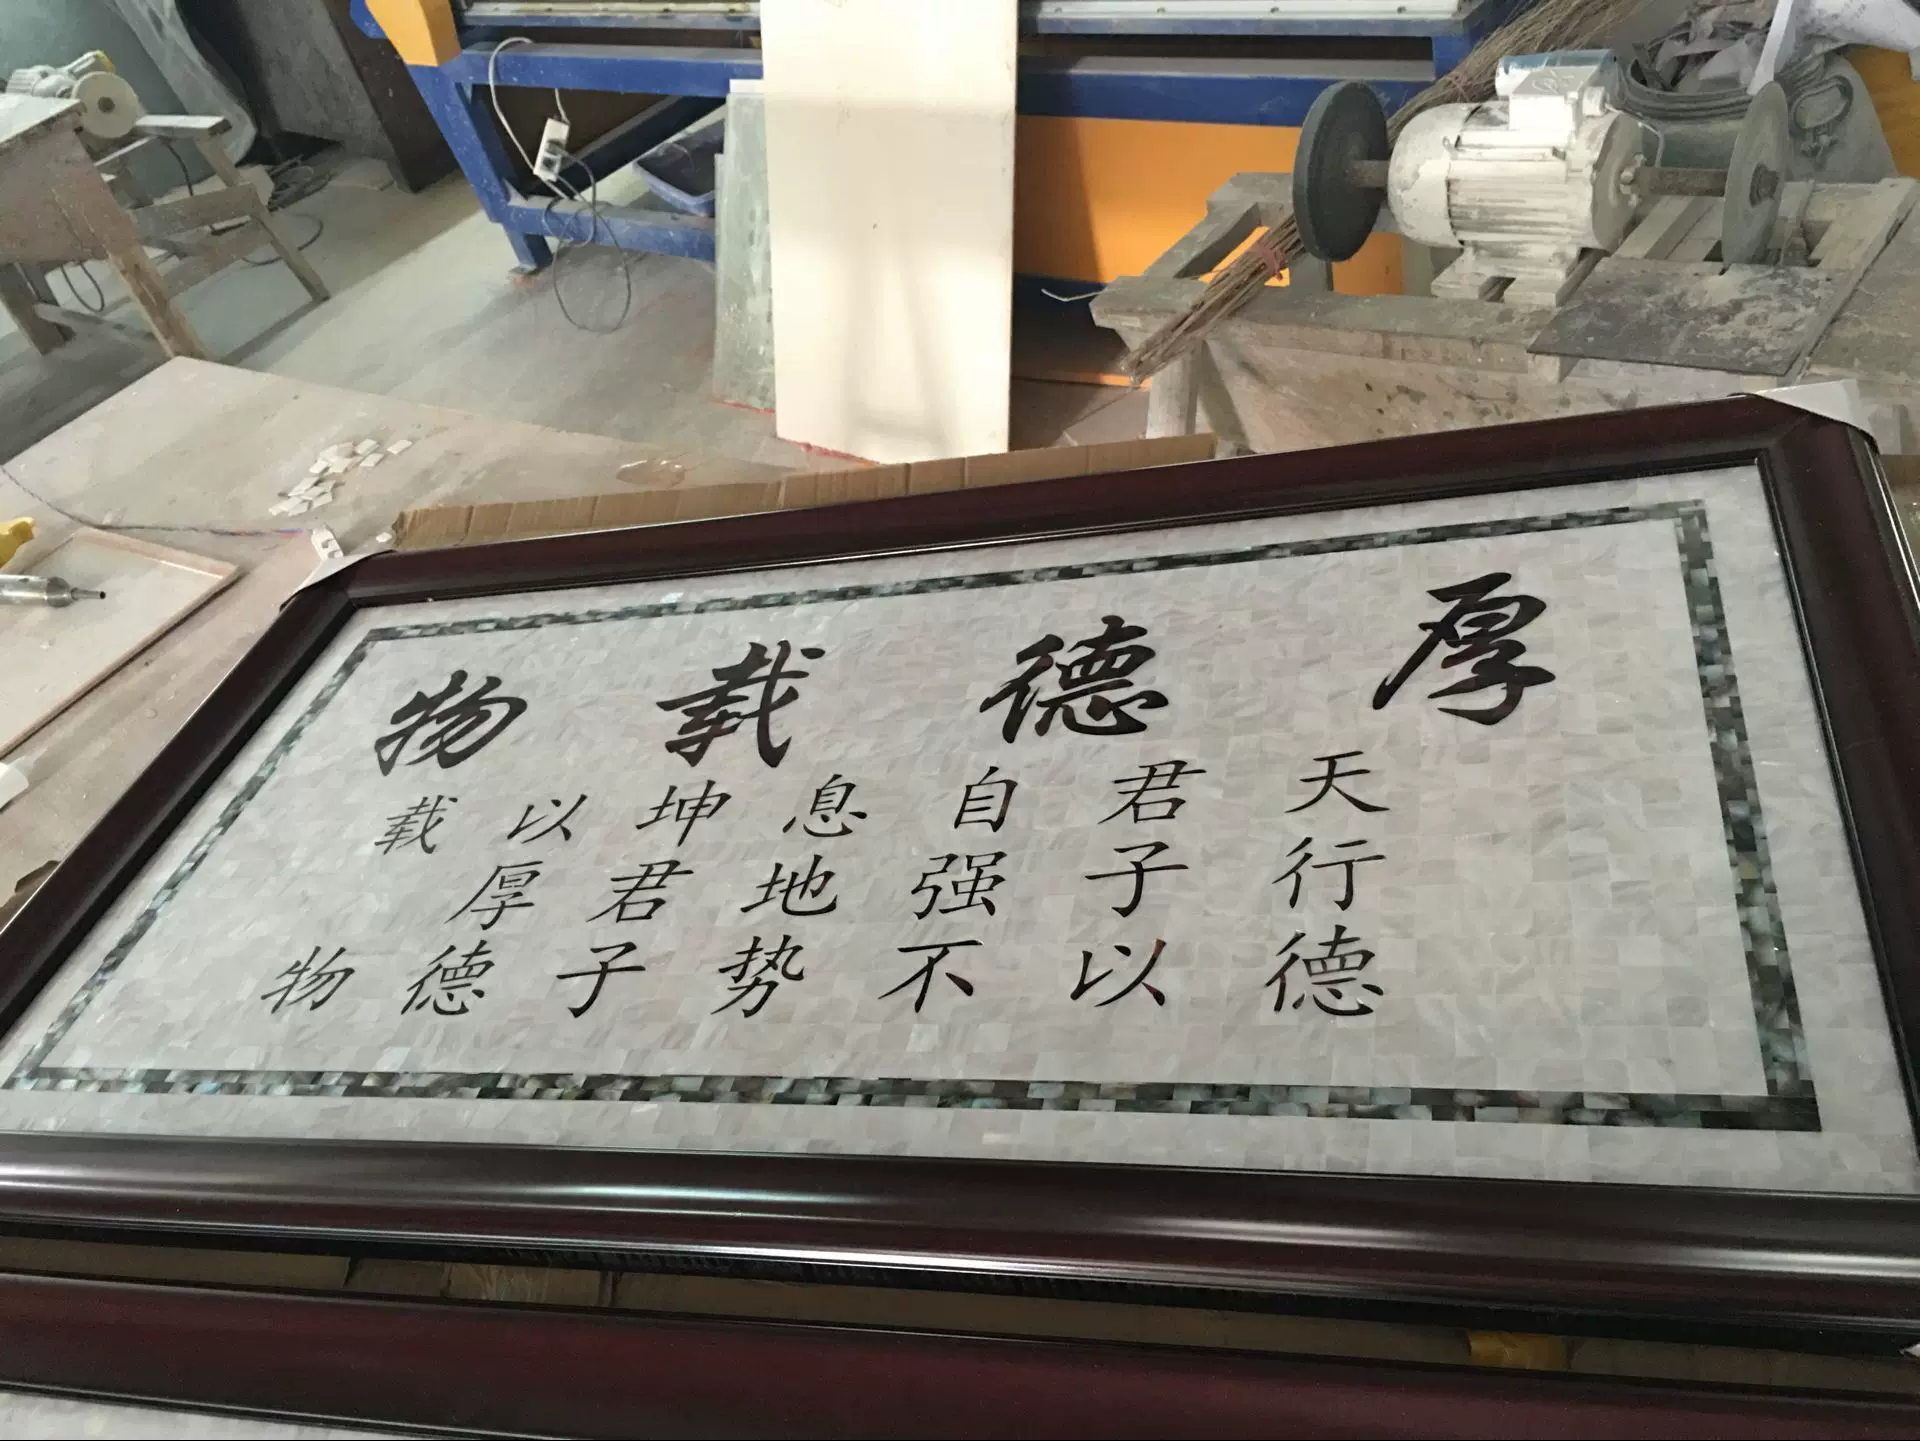 厚德载物
天行德
君子以
自强不
息地势
坤君子
以厚德
载物